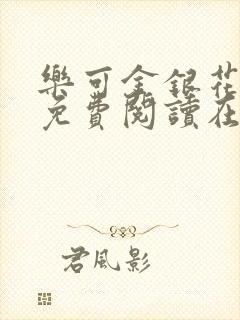 樂可金銀花
免費閱讀在
君風影